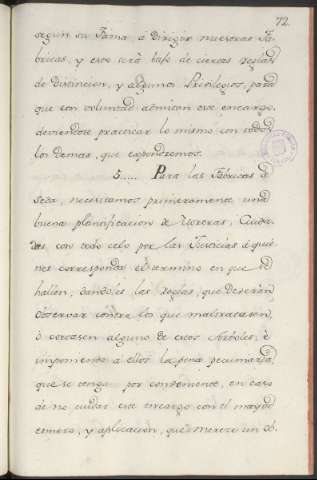 72
segun su Fama à Dirigir nuestras Fa-
bricas, y esto será bajo de ciertas reglas
de Distincion, y algunos Privilegios, para
que con voluntad admitan ese encargo,
deviendose practicar lo mismo con todos
los demas, que expondremos.
5..... Para las Fabricas de
seda, necesitamos primeramente una
buena plantificacion de Moreras, Cuida-
das con todo celo por las Justicias á quie-
nes corresponda el termino en que se
hallen, dandoles las reglas, que deveràn
observar contra los que maltratasen,
ò cortasen alguno de estos Arboles; è
imponiendo á ellos la pena pecuniaria,
que se tenga por combeniente, en caso
de no cuidar ese encargo con el mayor
esmero, y aplicacion, que merece un ob-